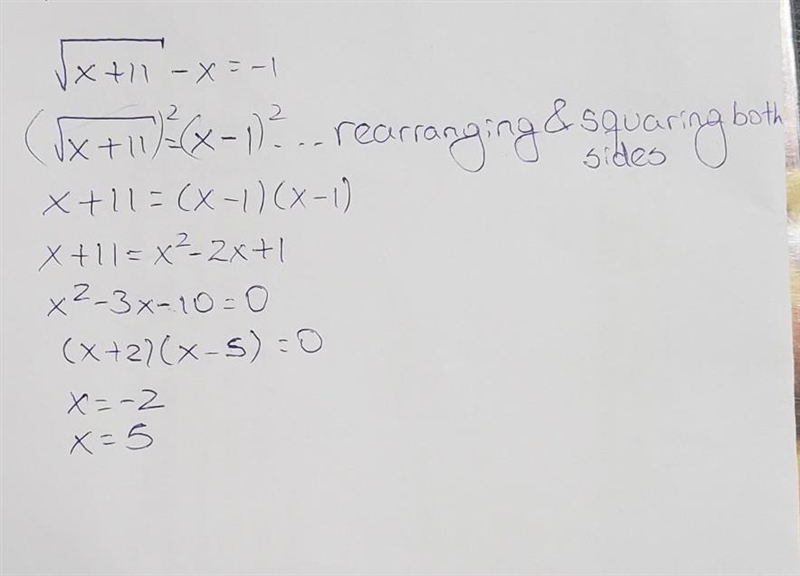 √(x+11) - x = -1
(√(x+11))² = (x-1)² ... rearranging & squaring both sides
x+11 = (x-1)(x-1)
x+11 = x²-2x+1
x²-3x-10=0
(x+2)(x-5)=0
x=-2
x=5